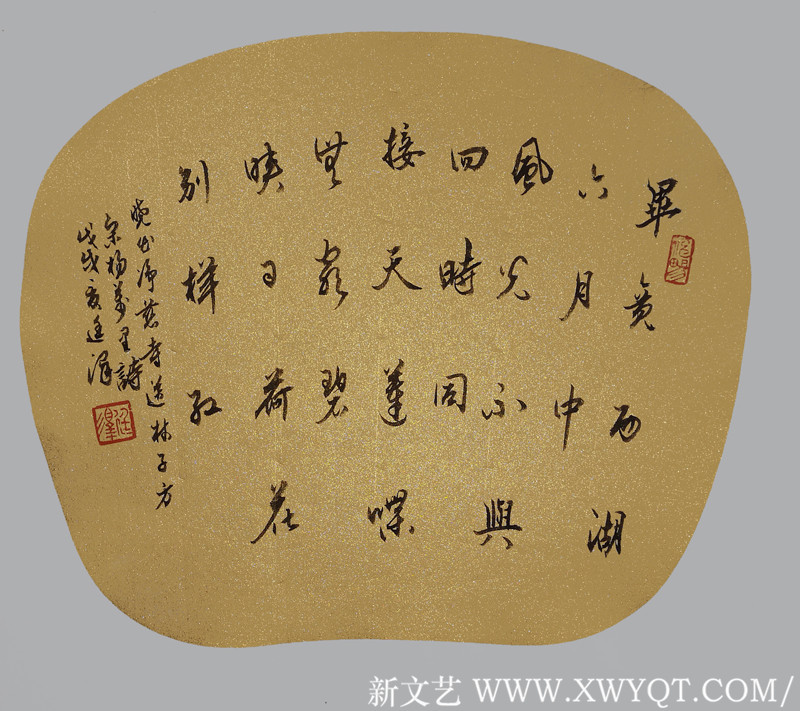 畢竟西湖
六月中
風光不與
四時同
接天蓮蝶
無窮碧
映日荷花
别样红
曉出淨慈寺送林子方
宋杨萬里詩
戊戌夏廷澤
新文艺 WWW.XWYQT.COM/